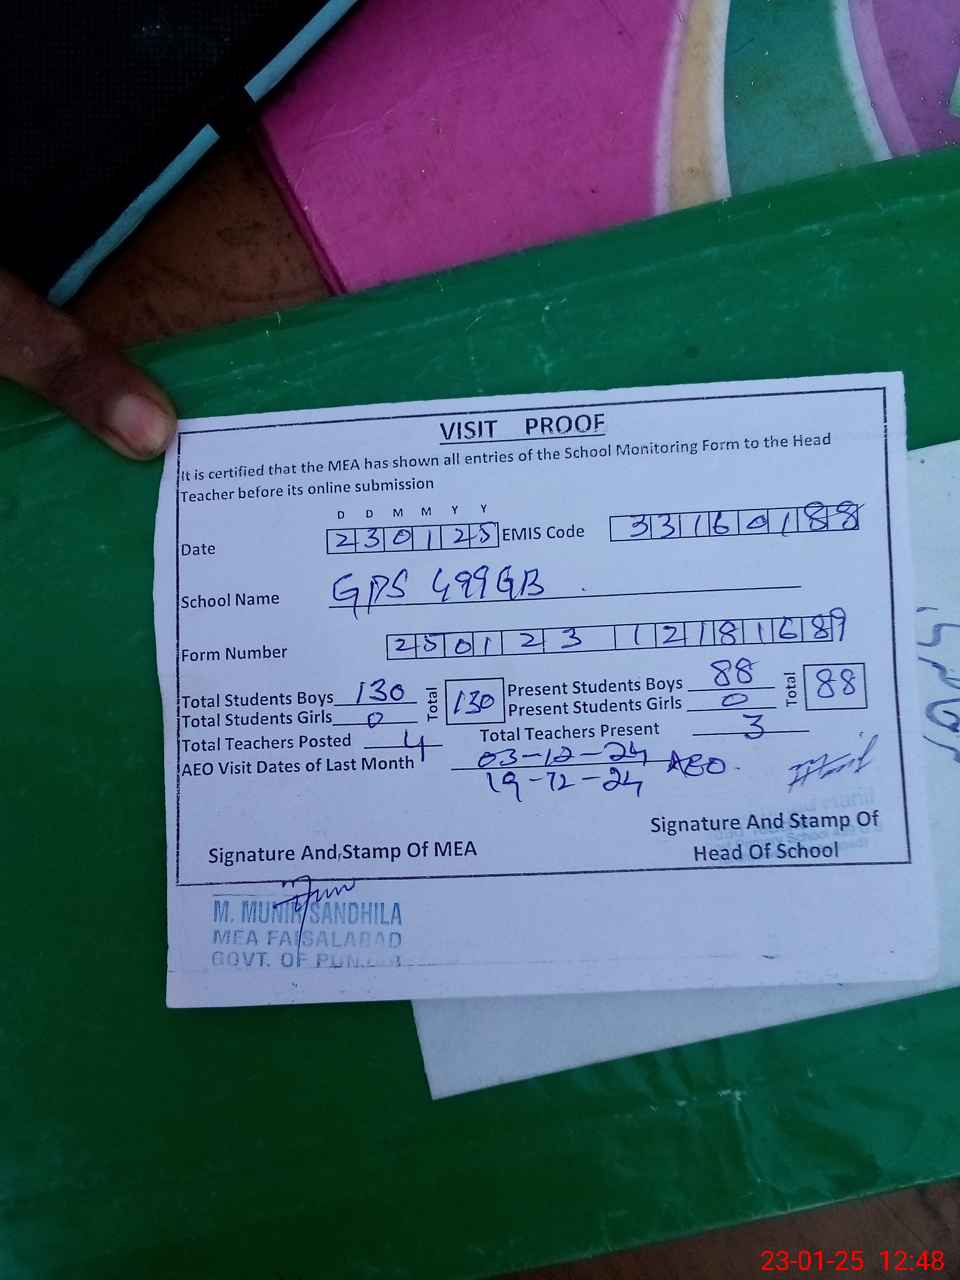 VISIT PROOF
It is certified that the MEA has shown all entries of the School Monitoring Form to the Head
Teacher before its online submission
D D M M Y Y
Date 230125 EMIS Code 33160188
School Name GPS 499GB
Form Number 25012312181689
Total Students Boys 130 Total 130 Present Students Boys 88 Total 88
Total Students Girls 0 Present Students Girls 0
Total Teachers Posted 4 Total Teachers Present 3
AEO Visit Dates of Last Month 03-12-24 AEO.
19-12-24
Signature And Stamp Of MEA Signature And Stamp Of
Head Of School
M. MUNIR SANDHILA
MEA FAISALABAD
GOVT. OF
23-01-25 12:48